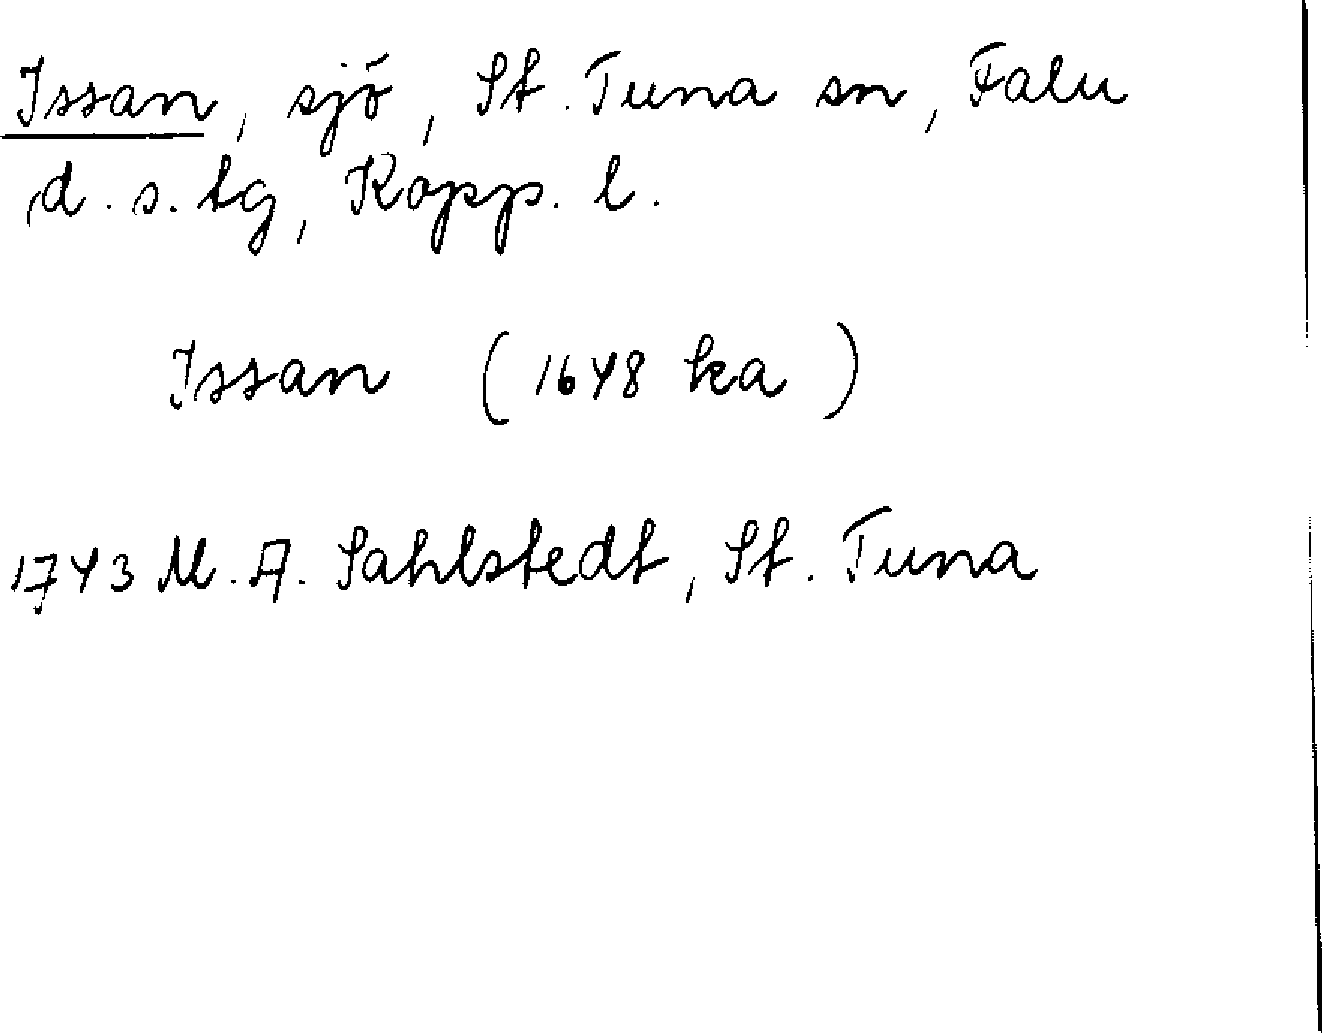 Issan, sjö, St. Tuna sn, Falu
d. s. tg, Kopp. l.
Issan (1648 ka)
1743 M. A. Sahlstedt, St. Tuna